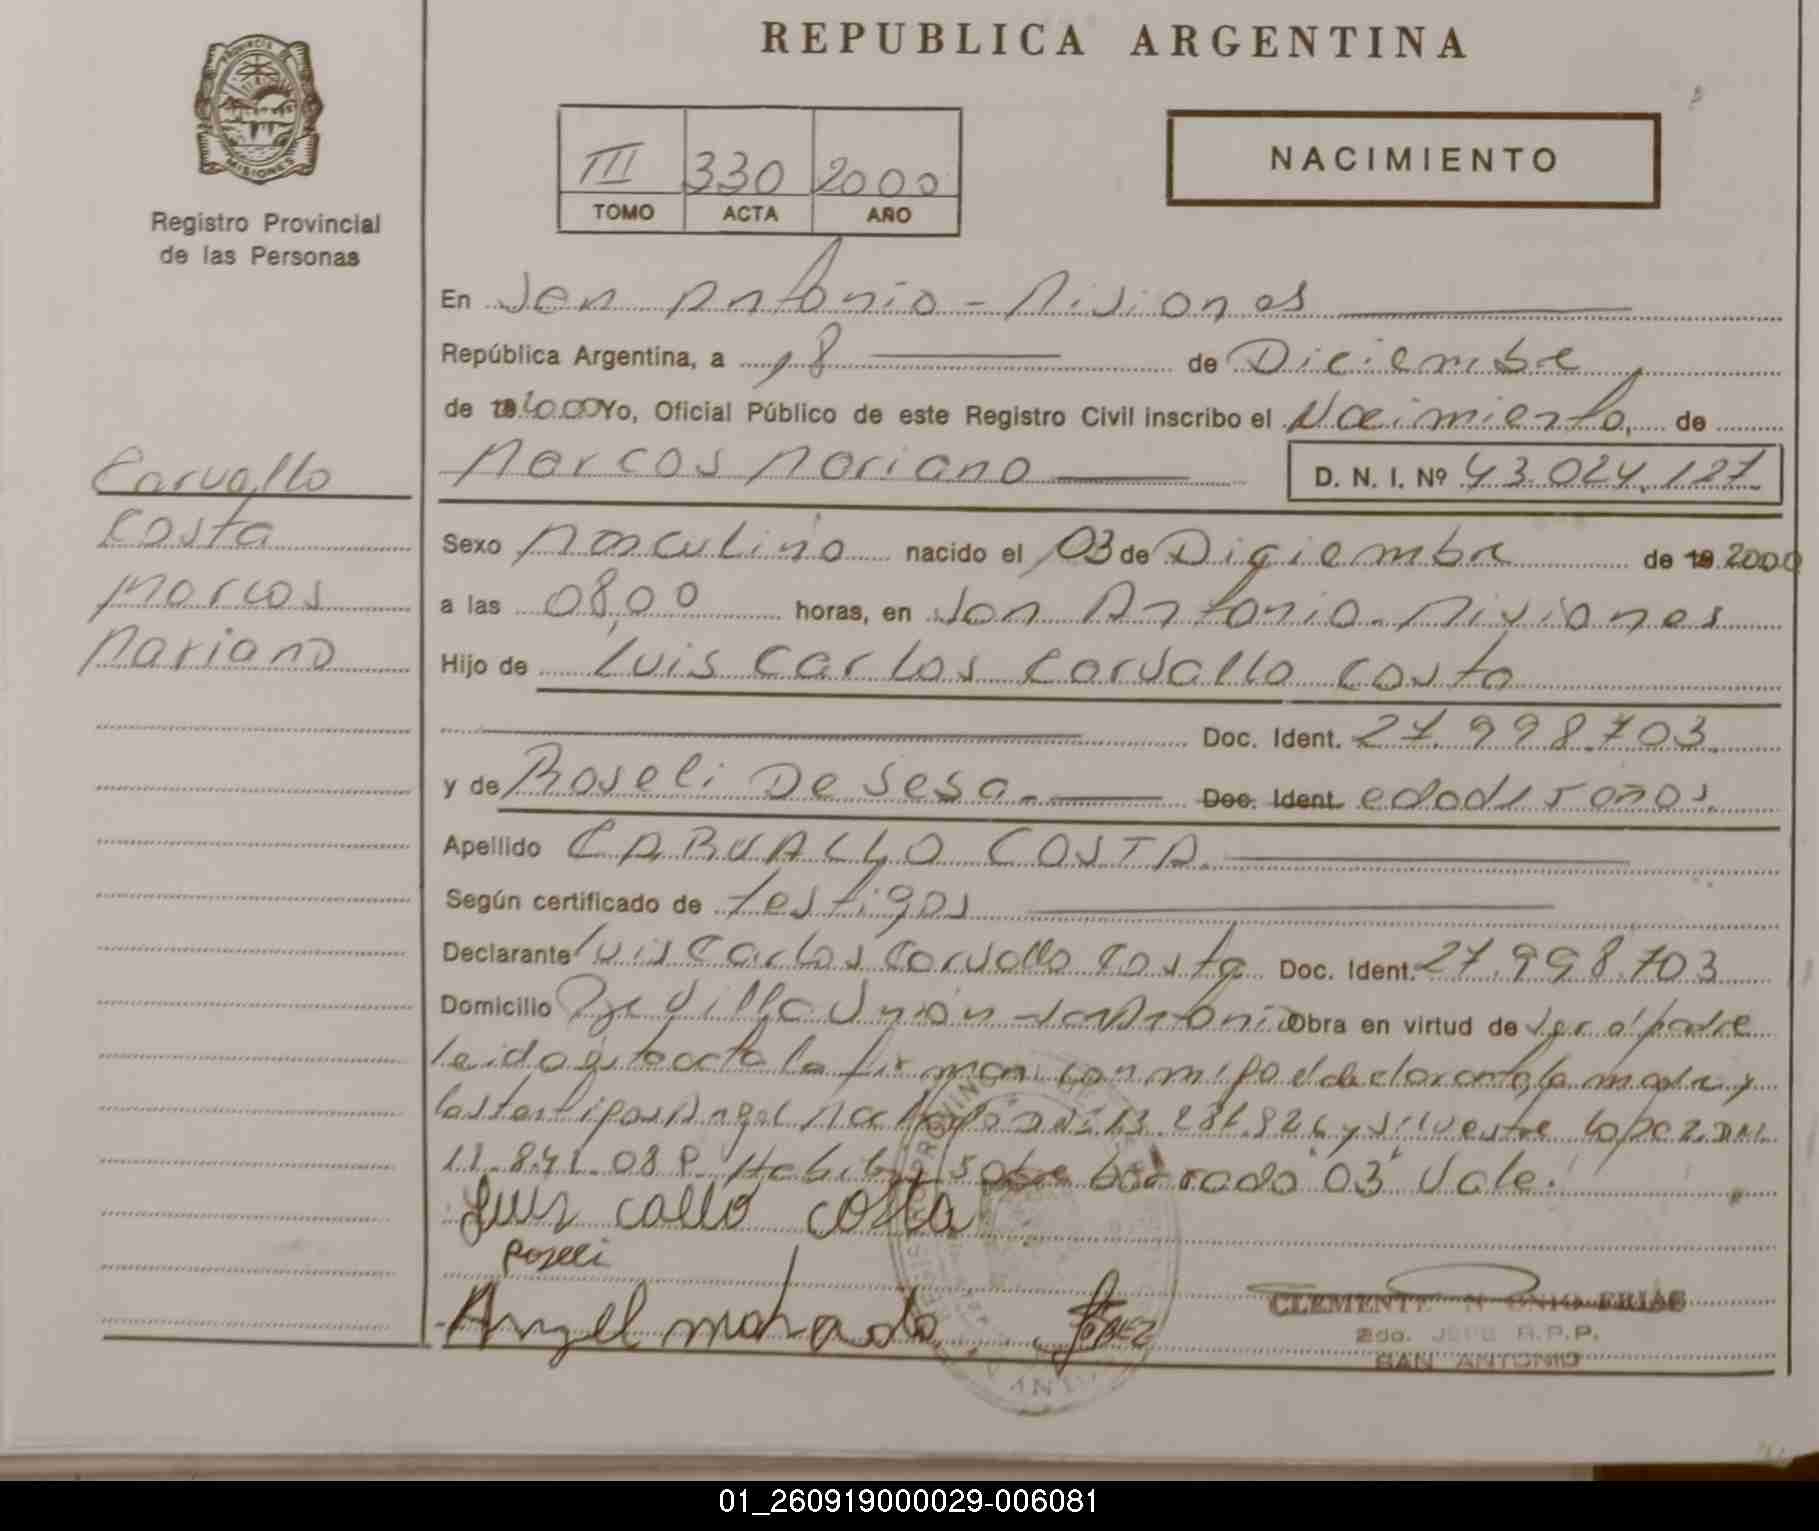 REPUBLICA ARGENTINA
PROVINCIA DE
MISIONES
Registro Provincial
de las Personas
III 330 2000
TOMO ACTA AÑO
NACIMIENTO
En San Antonio - Misiones
República Argentina, a 18 de Diciembre
de 19 2000 Yo, Oficial Público de este Registro Civil inscribo el Nacimiento, de
Marcos Mariano D. N. I. Nº 43.024.127
Carvallo
Costa
Marcos
Mariano
Sexo Masculino nacido el 03 de Diciembre de 19 2000
a las 08,00 horas, en San Antonio. Misiones
Hijo de Luis Carlos Carvallo Costa
Doc. Ident. 27.998.703
y de Roseli De Sesa Doc. Ident. edad 15 años.
Apellido CARVALLO COSTA
Según certificado de testigos
Declarante Luis Carlos Carvallo Costa Doc. Ident. 27.998.703
Domicilio Villa Unión San Antonio Obra en virtud de ser el padre
leido esta acta la firman conmigo el declarante, la madre y
los testigos Angel Machado DNI y Silvestre Lopez, DNI
borrado "03" Vale.
Luis callo costa
Roseli
Angel machado LOPEZ
CLEMENTE ANTONIO FRIAS
2do. JEFE R.P.P.
SAN ANTONIO
01_260919000029-006081